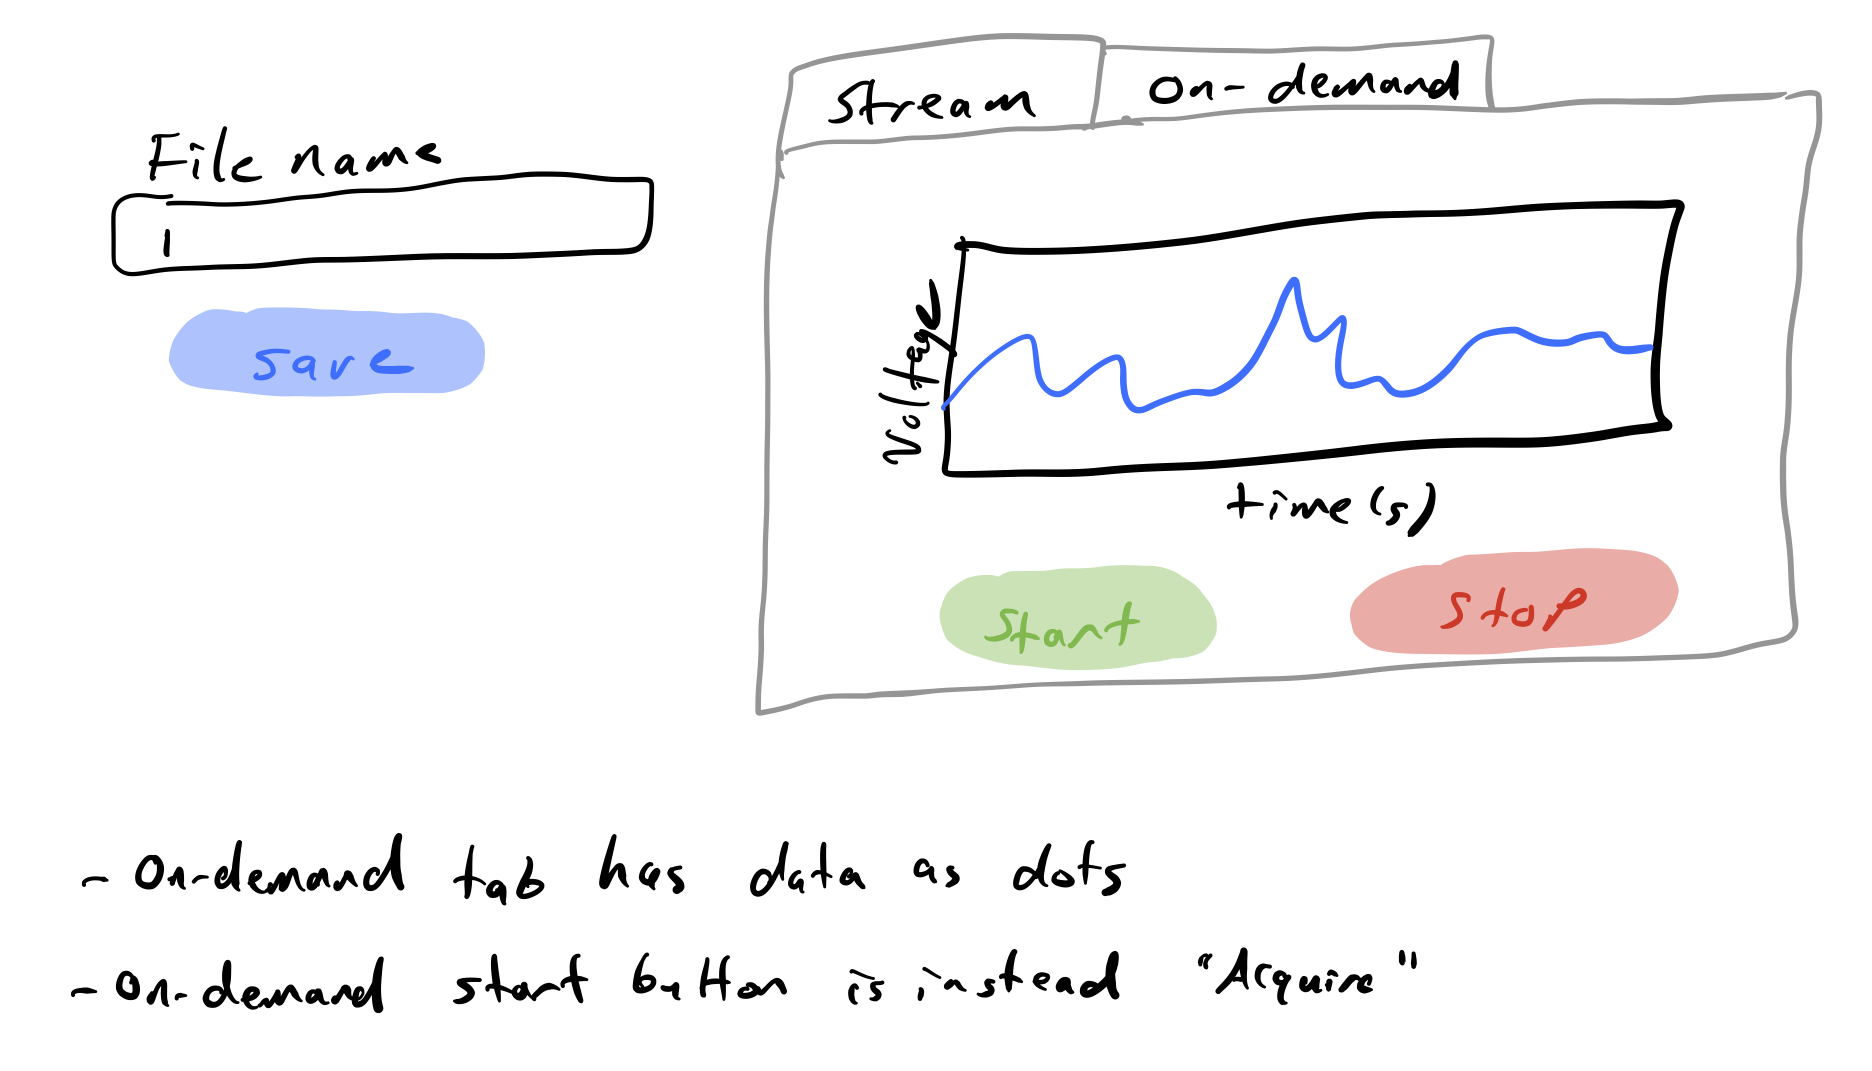 File name
save
Stream
On-demand
Voltage
time (s)
Start
Stop
- On-demand tab has data as dots
- On-demand start button is instead "Acquire"